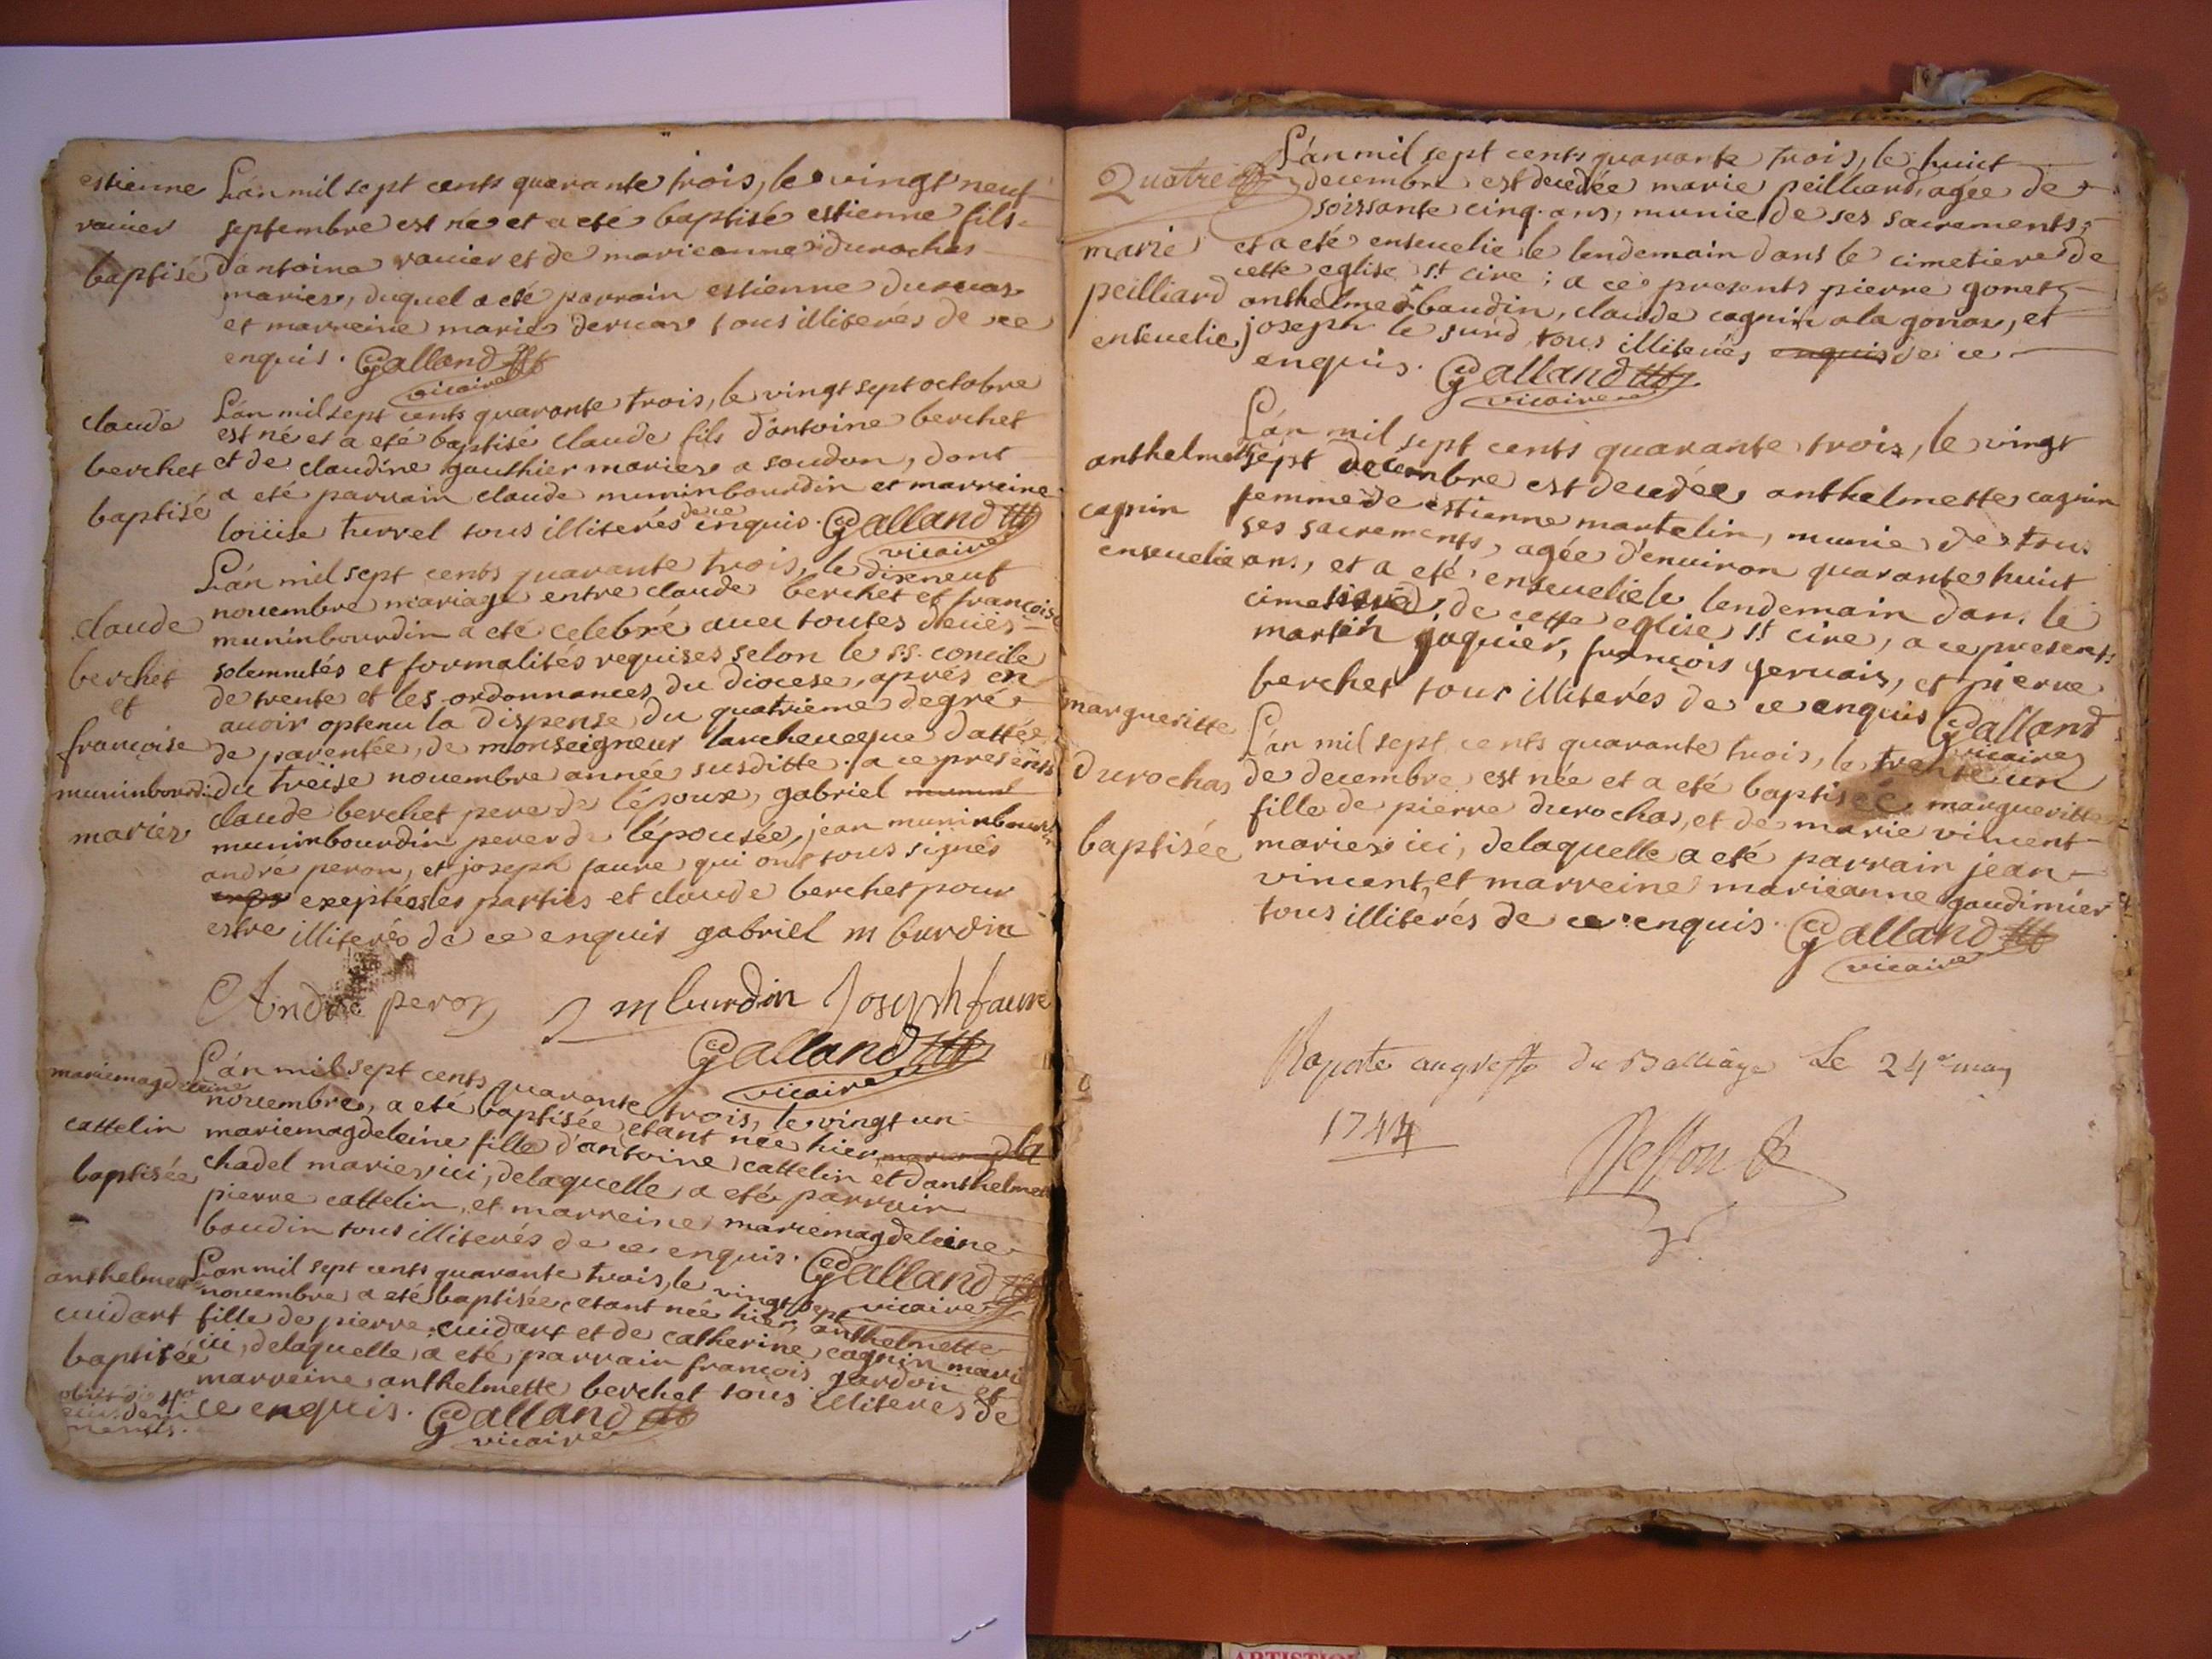 estienne
rauier
baptisé
L'an mil sept cents quarante trois, le vingt neuf
septembre est né et a eté baptisé estienne fils
d'antoine rauier et de marieanne durochas
maries, duquel a eté parrain estienne
et marreine marie tous illiterés de ce
enquis. Galland
vicaire
claude
berchet
baptisé
L'an mil sept cents quarante trois, le vingt sept octobre
est né et a eté baptisé claude fils d'antoine berchet
et de claudine gauthier maries a soudon, dont
a eté parrain claude muninbourdin et marreine
louise turrel tous illiterés de ce enquis. Galland
vicaire
claude
berchet
et
françoise
muninbourdi:
maries
L'an mil sept cents quarante trois, le dixneuf
nouembre mariage entre claude berchet et françoise
muninbourdin a eté celebré auec toutes deues
solemnités et formalités requises selon le s.s. concile
de trente et les ordonnances du diocese, aprés en
auoir optenu la dispense du quatrieme degré
de parentée, de monseigneur larcheueque dattée
du treise nouembre année susditte. a ce presents
claude berchet pere de l'époux, gabriel munin
muninbourdin pere de l'épousée, jean muninbourdin
andré peron, et joseph faure qui ont tous signés
exeptées les parties et claude berchet pour
estre illiterés de ce enquis gabriel m burdin
André peron J m burdin Joseph faure
Galland
vicaire
mariemagdeleine
cattelin
baptisée
L'an mil sept cents quarante trois, le vingt un
nouembre, a eté baptisée etant née hier
mariemagdeleine fille d'antoine cattelin et d'anthelmette
chadel maries ici, delaquelle a eté parrain
pierre cattelin, et marreine mariemagdeleine
boudin tous illiterés de ce enquis. Galland
vicaire
anthelmette
cuidart
baptisée
L'an mil sept cents quarante trois, le vingt sept
nouembre a eté baptisée etant née hier anthelmette
fille de pierre cuidart et de catherine cagnin maries
ici, delaquelle a eté parrain françois gardon et
marreine anthelmette berchet tous illiterés de
ce enquis. Galland
vicaire
Quatre
marie
peilliard
enseuelie
L'an mil sept cents quarante trois, le huict
decembre est decedée marie peilliard, agée de
soissante cinq ans, munie de ses sacrements,
et a eté enseuelie le lendemain dans le cimetiere de
cette eglise st cire; a ce presents pierre gonet,
anthelme baudin, claude cagnin a la gonas, et
joseph le surd tous illiterés enquis de ce
enquis. Galland
vicaire
anthelmette
cagnin
enseuelie
L'an mil sept cents quarante trois, le vingt
sept decembre est decedée anthelmette cagnin
femme de estienne martelin, munie de tous
ses sacrements, agée d'enuiron quarante huict
ans, et a eté enseuelie le lendemain dans le
cimetiere de cette eglise st cire, a ce presents
martin jaquier, françois geruais, et pierre
berchet tous illiterés de ce enquis Galland
vicaire
margueritte
durochas
baptisée
L'an mil sept cents quarante trois, le trente un
de decembre est née et a eté baptisée margueritte
fille de pierre durochas, et de marie vincent
maries ici, delaquelle a eté parrain jean
vincent, et marreine marieanne gaudimier
tous illiterés de ce enquis. Galland
vicaire
Raporté au greffe du Balliage Le 24e may
1744